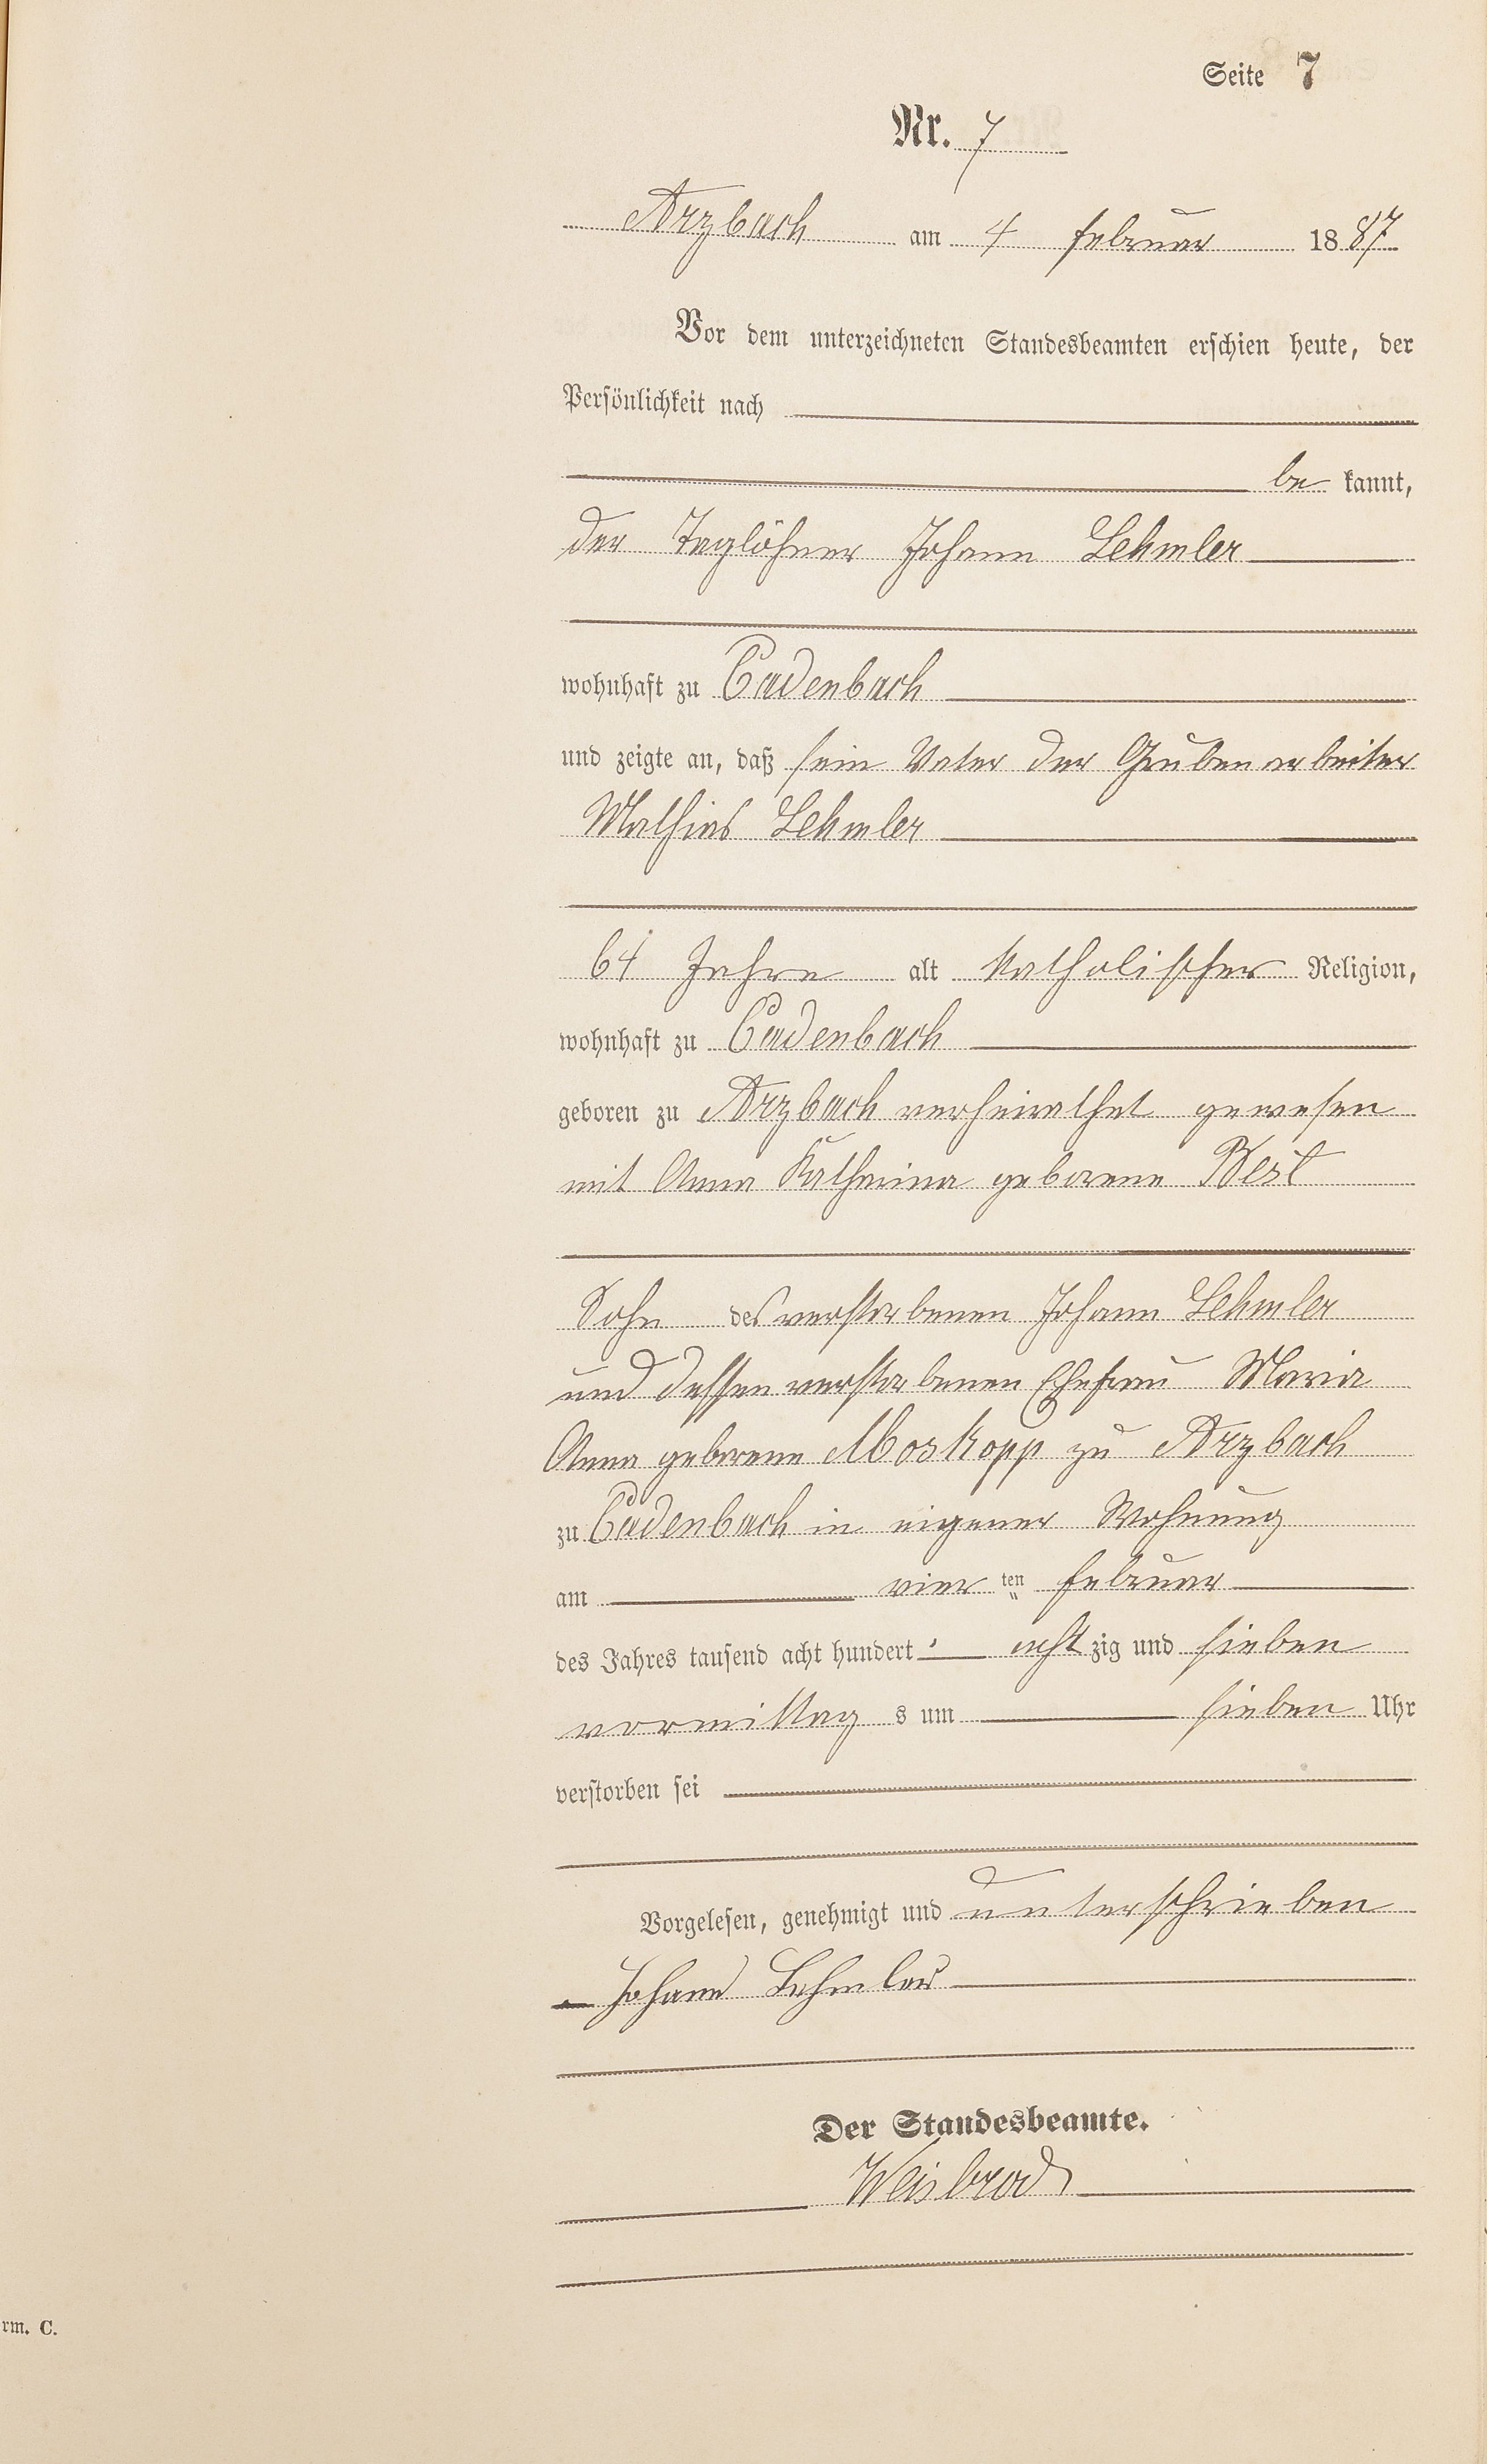 Seite 7
Nr. 7
Arzbach am 4 Februar 1887
Vor dem unterzeichneten Standesbeamten erschien heute, der
Persönlichkeit nach
be kannt,
der Taglöhner Johann Lehmler
wohnhaft zu Cadenbach
und zeigte an, daß sein Vater der Grubenarbeiter
Mathias Lehmler
64 Jahre alt katholischer Religion,
wohnhaft zu Cadenbach
geboren zu Arzbach verheirathet gewesen
mit Anna Katharina geborene Best
Sohn des verstorbenen Johann Lehmler
und dessen verstorbenen Ehefrau Maria
Anna geborene Moskopp zu Arzbach
zu Cadenbach in eigener Wohnung
am vier ten Februar
des Jahres tausend acht hundert acht zig und sieben
vormittag s um sieben Uhr
verstorben sei
Vorgelesen, genehmigt und unterschrieben
Johann Lehmler
Der Standesbeamte.
Weisbrod
rm. C.